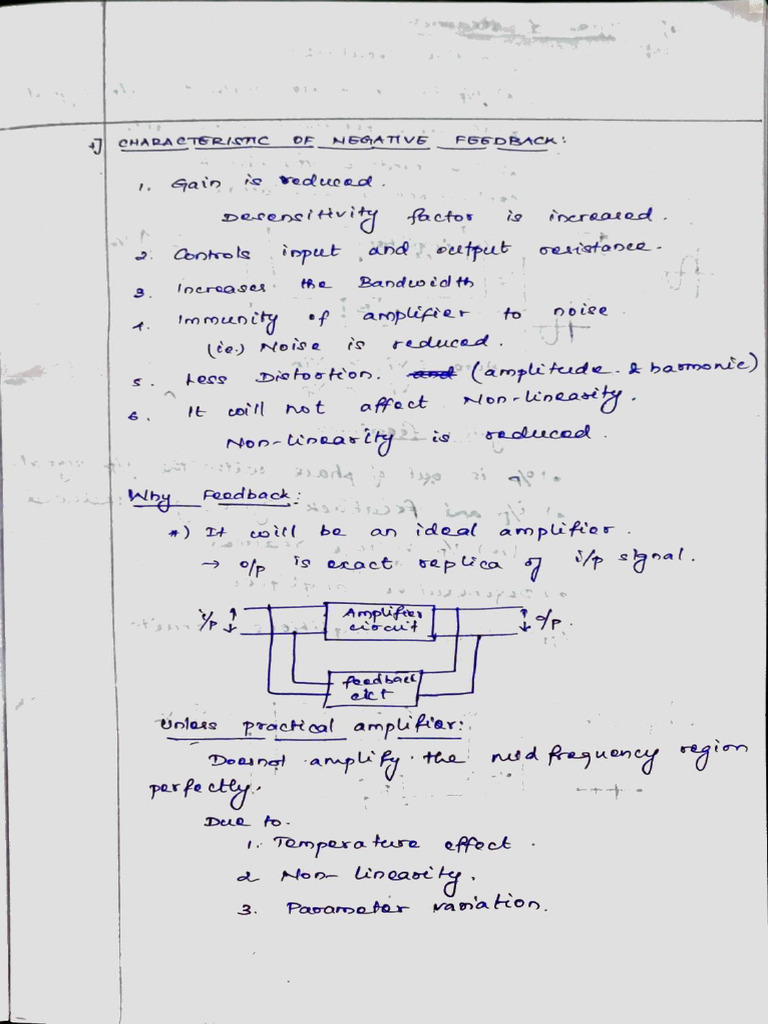 *] CHARACTERISTIC OF NEGATIVE FEEDBACK:
1. Gain is reduced.
Desensitivity factor is increased.
2. Controls input and output resistance.
3. Increases the Bandwidth
4. Immunity of amplifier to noise
(ie.) Noise is reduced.
5. Less Distortion. and (amplitude & harmonic)
6. It will not affect Non-linearity.
Non-linearity is reduced.
Why Feedback:
*) It will be an ideal amplifier.
→ o/p is exact replica of i/p signal.
i/p Amplifier o/p.
circuit
feedback
ckt
Unless practical amplifier:
Doesnot amplify the mid frequency region
perfectly.
Due to.
1. Temperature effect.
2 Non-linearity.
3. Parameter variation.